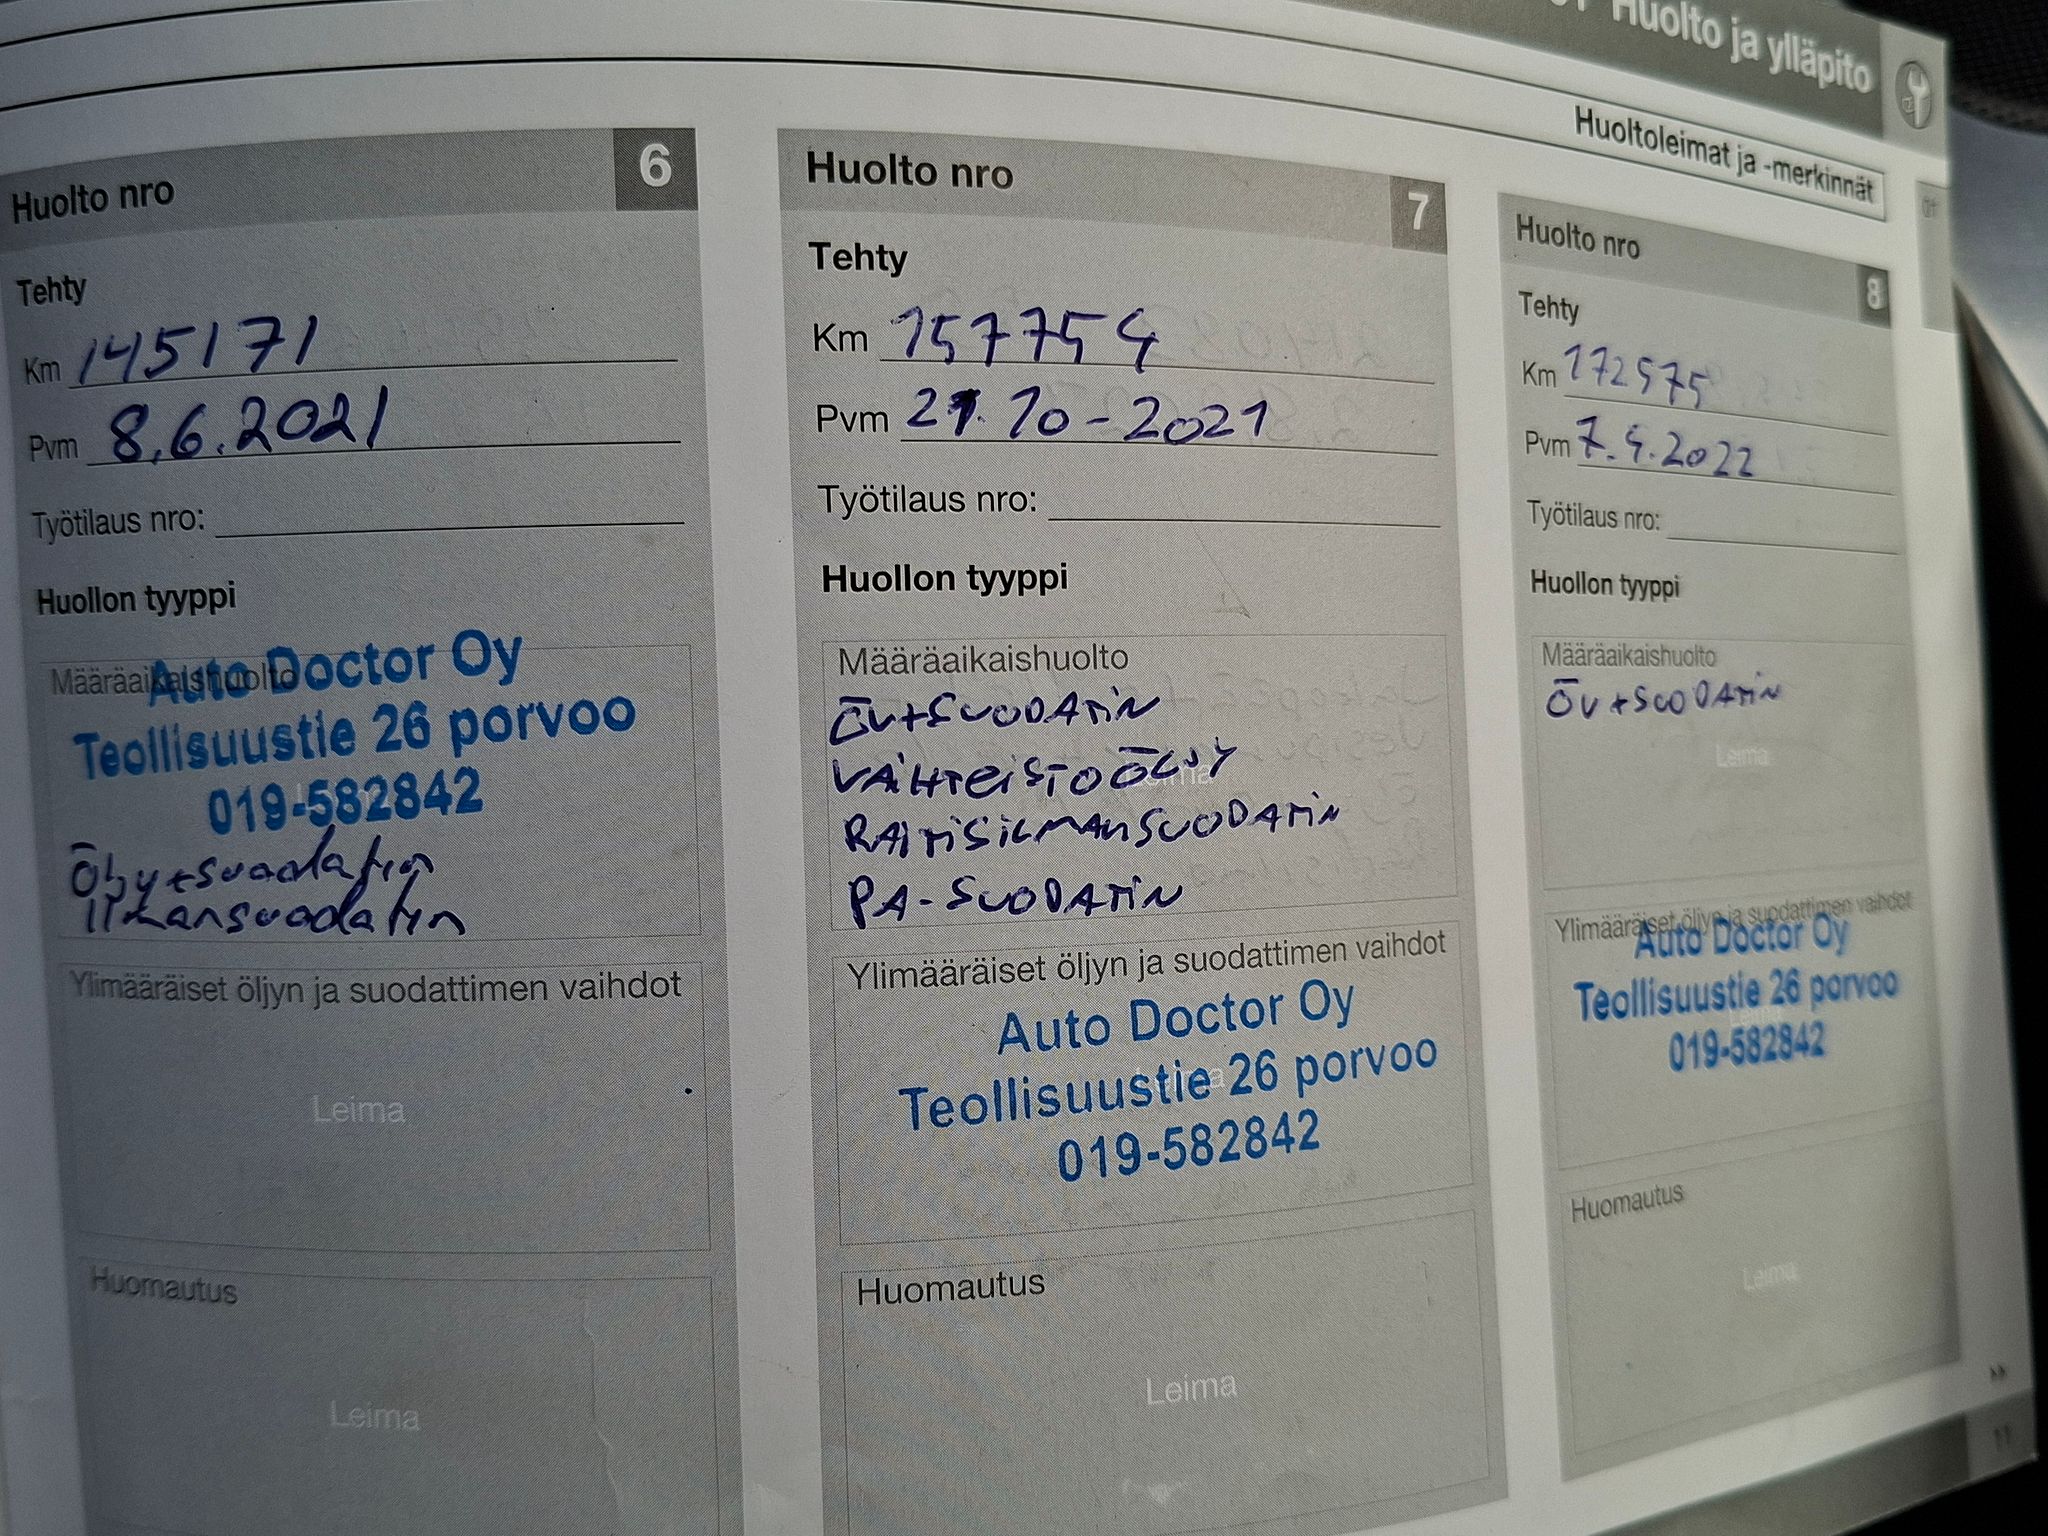 Huolto ja ylläpito
Huoltoleimat ja -merkinnät
Huolto nro 6
Tehty
Km 145171
Pvm 8.6.2021
Työtilaus nro:
Huollon tyyppi
Määräaikaishuolto
Auto Doctor Oy
Teollisuustie 26 porvoo
019-582842
Öljy+suodatin
Ilmansuodatin
Ylimääräiset öljyn ja suodattimen vaihdot
Leima
Huomautus
Leima
Huolto nro 7
Tehty
Km 157754
Pvm 21.10-2021
Työtilaus nro:
Huollon tyyppi
Määräaikaishuolto
ÖV+SUODATIN
VAIHTEISTOÖLJY
Leima
RAITISILMANSUODATIN
PA-SUODATIN
Ylimääräiset öljyn ja suodattimen vaihdot
Auto Doctor Oy
Teollisuustie 26 porvoo
019-582842
Huomautus
Leima
Huolto nro 8
Tehty
Km 172575
Pvm 7.4.2022
Työtilaus nro:
Huollon tyyppi
Määräaikaishuolto
ÖV+SUODATIN
Leima
Ylimääräiset öljyn ja suodattimen vaihdot
Auto Doctor Oy
Teollisuustie 26 porvoo
019-582842
Huomautus
Leima
11